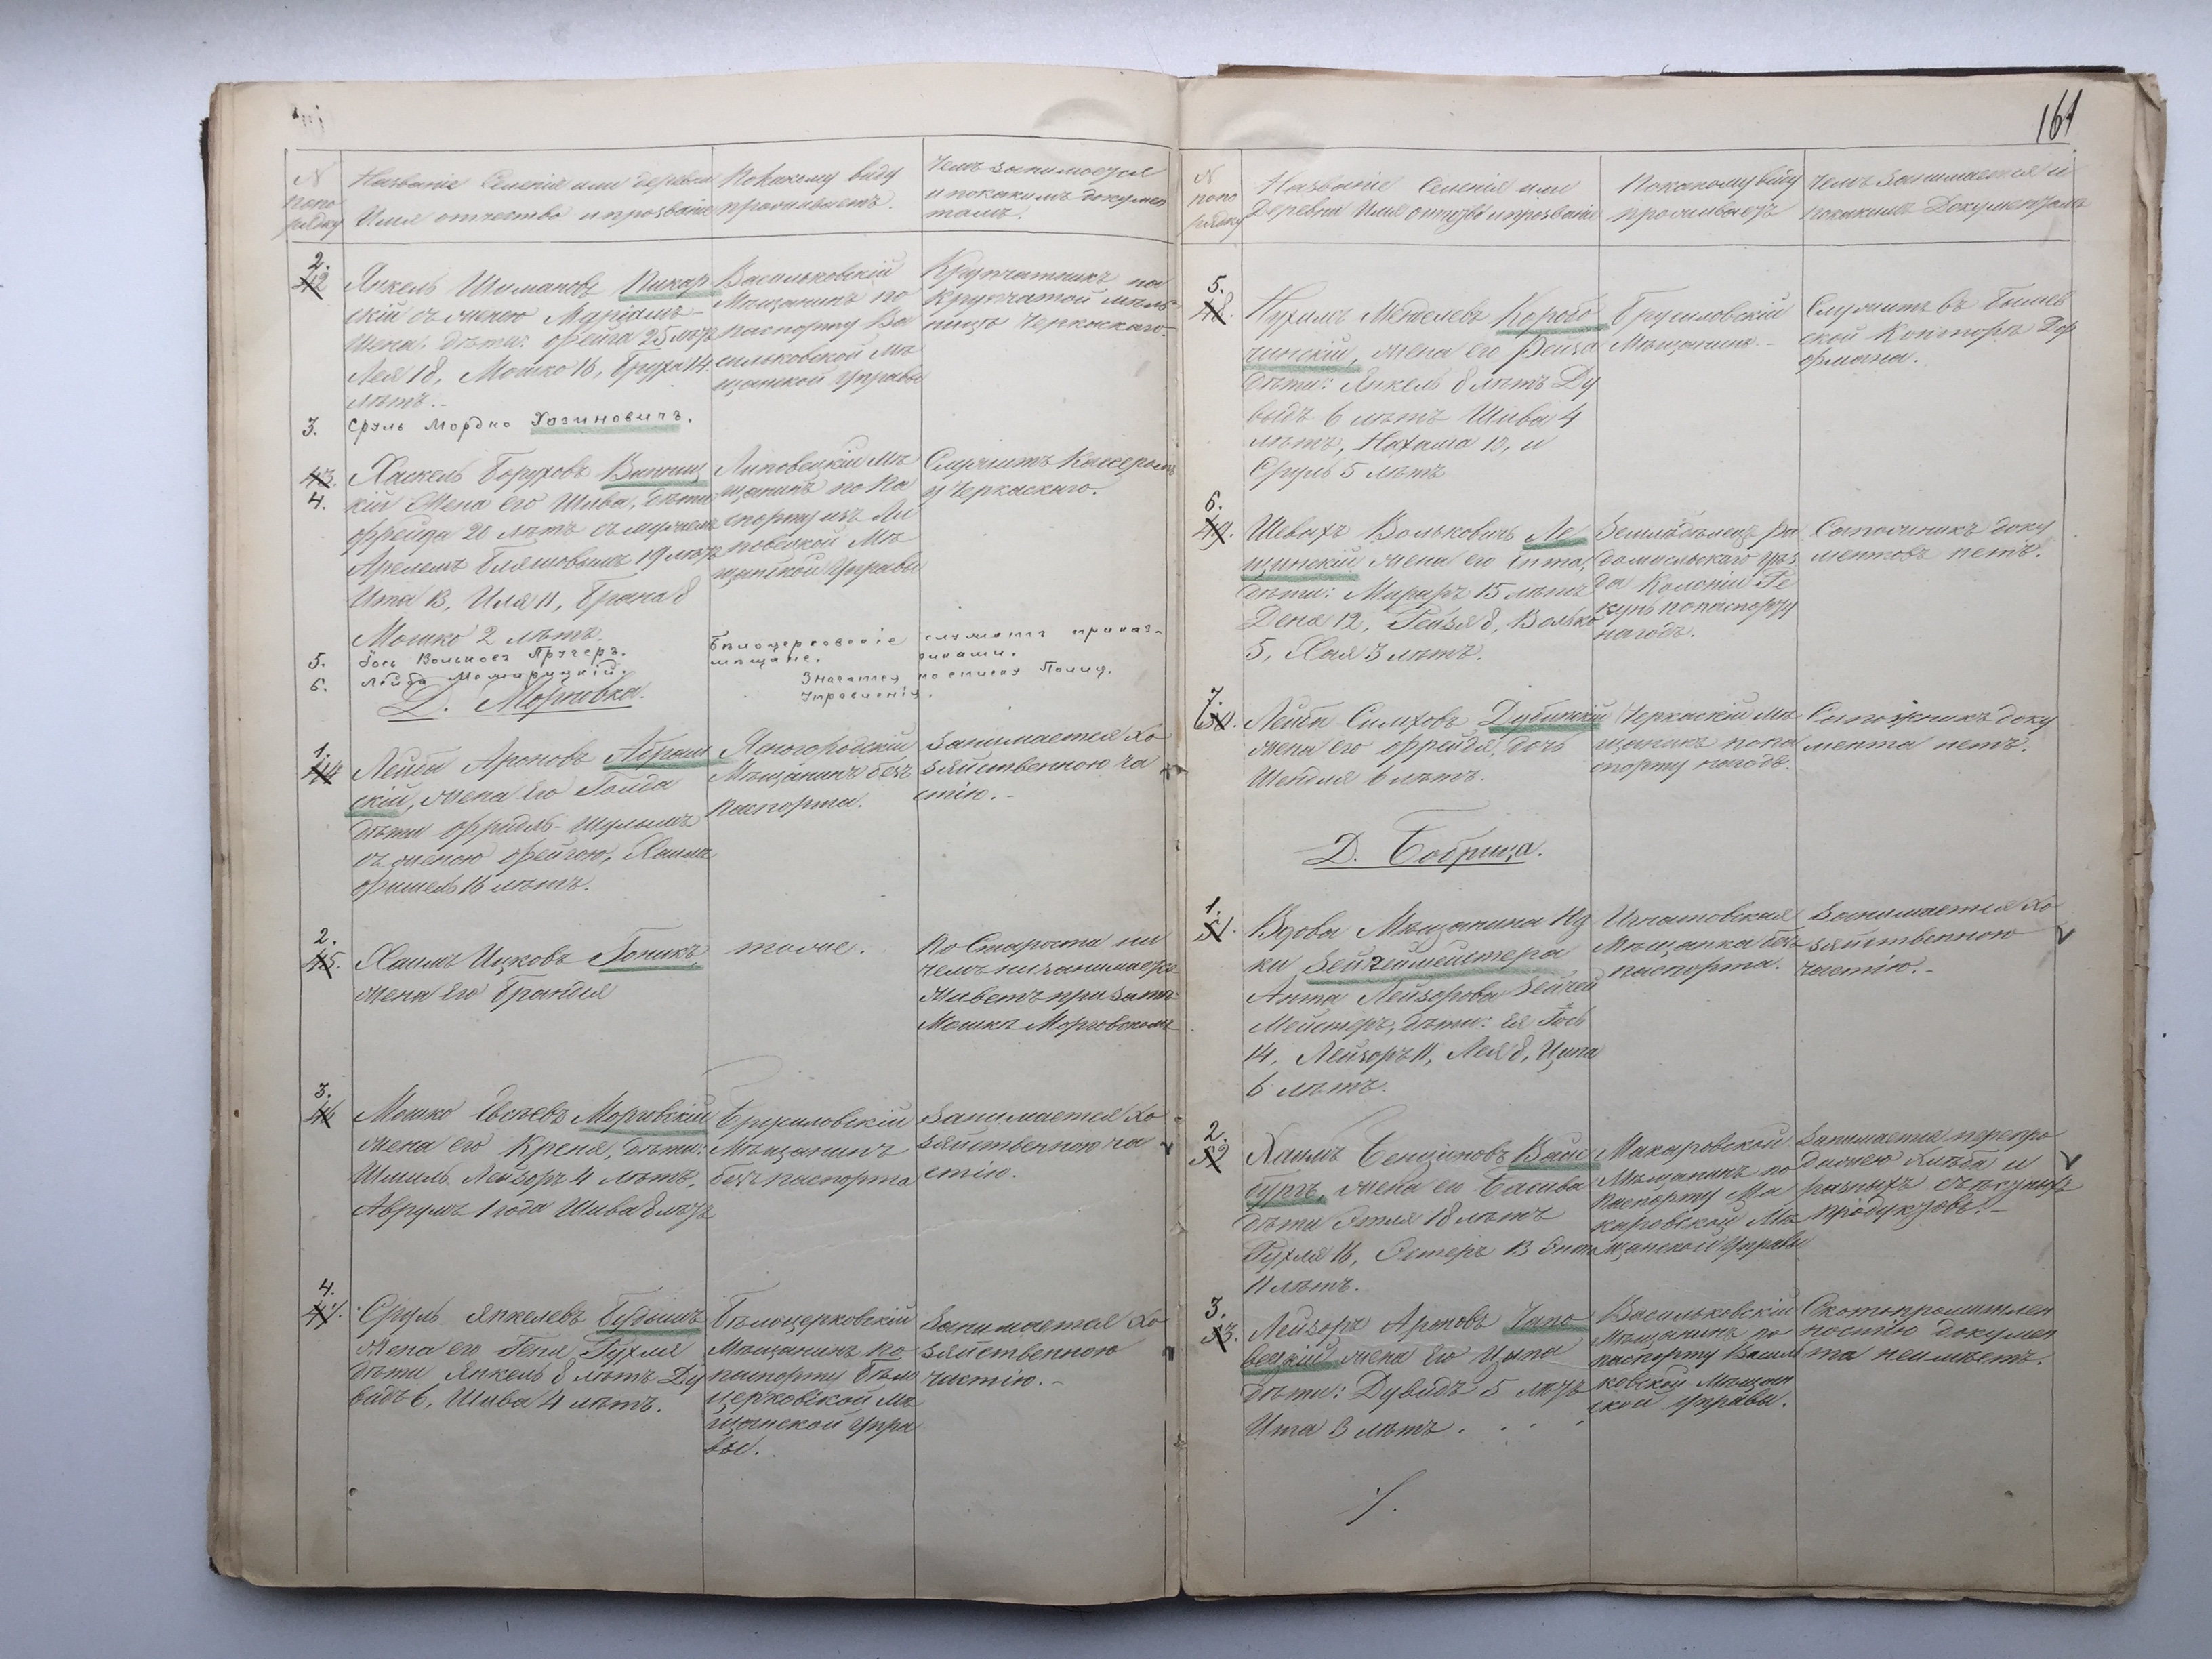 161
N
попо
рядку
Названіе Селенія или деревни
Имя отчество и прозваніе
По какому виду
проживаетъ.
Чемъ занимается
и по какимъ докумен
тамъ.
2.
42
Янкель Шимановъ Пикар
скій съ женою Маріамъ
Шена, дѣти: Фейга 25 лѣтъ
Лея 18, Мошко 16, Бруха 14
лѣтъ.
Васильковскій
Мѣщанинъ по
паспорту Ва
сильковской Мѣ
щанской Управы
Крупчатникъ на
Крупчатой мѣль
ницѣ Черкаскаго.
3. Сруль Мордко Хазиновичъ.
43.
4.
Хаскель Боруховъ Винниц
кій Жена его Шива, дѣти
Фрейда 20 лѣтъ съ мужемъ
19 лѣтъ
Ита 13, Иля 11, Брана 8
Мошко 2 лѣтъ.
Липовецкій Мѣ
щанинъ по Па
спорту изъ Ли
повецкой Мѣ
щанской Управы
Служитъ Кассеромъ
у Черкаскаго.
5. Іось Вольковъ Пругеръ.
6. Лейба Можарицкій.
Бѣлоцерковскіе
мѣщане.
служатъ приказ-
чиками.
Значатся по списку Полиц.
Управленія.
Д. Моровка.
1.
44
Лейба Ароновъ Абрам
скій, жена его Голда
дѣти Фридель-Шулимъ
съ женою Фейгою, Хаимъ
Фишель 16 лѣтъ.
Ясногородскій
Мѣщанинъ безъ
паспорта.
Занимается Хо
зяйственною ча
стію.
2.
45.
Хаимъ Ицковъ Гоникъ,
жена его Брандля
тоже.
По Старости ни
чемъ не занимается
живетъ при зятѣ
МошкѣМорговскомъ
3.
46
Мошко Евсѣевъ Морговскій
жена его Креня, дѣти:
Шмиль Лейзоръ 4 лѣтъ,
Аврумъ 1 года Шива 8 лѣтъ
Брусиловскій
Мѣщанинъ
безъ паспорта
Занимается Хо
зяйственною ча
стію.
4.
47.
Сруль Янкелевъ Будынъ
Жена его Геня, Рухля
дѣти Янкель 8 лѣтъ Ду
видъ 6, Шива 4 лѣтъ.
Бѣлоцерковскій
Мѣщанинъ по
паспорту Бѣло
церковской Мѣ
щанской Упра
вы.
Занимается Хо
зяйственною
частію.
N
попо
рядку
Названіе Селенія или
Деревни Имя отчество и прозваніе
По какому виду
проживаетъ
Чемъ занимается и
по какимъ Документамъ
5.
48.
Нухимъ Менделевъ Коробо
чинскій, жена его Рейза
дѣти: Янкель 8 лѣтъ Ду
видъ 6 лѣтъ Шива 4
лѣтъ, Нахама 10, и
Сруль 5 лѣтъ
Брусиловскій
Мѣщанинъ.
Служитъ въ Бышев
ской Конторѣ Дор
фмана.
6.
49.
Шевахъ Вольковичъ Ле
щинскій жена его Ента,
дѣти: 15 лѣтъ
Дена 12, Рейзя 8, Волько
5, Хая 3 лѣтъ.
Земледѣлецъ Ра
домысльскаго Уѣз
да Колоніи Ре
кунь по паспорту
на годъ.
Сапожникъ доку
ментовъ нетъ.
7.
50.
Лейба Симховъ Дубинскій
жена его Фрейдя, дочь
Шендля 6 лѣтъ.
Черкаскій мѣ
щанинъ по па
спорту на годъ.
Сапожникъ доку
мента нетъ.
Д. Бобрица.
1.
51.
Вдова Мѣщанина Ид
ки Зейгеймейстера
Анта Лейзорова Зейгей
Мейстеръ, дѣти: ея Іось
14, Лейзоръ 11, Лея 8, Ципа
6 лѣтъ.
Игнатовская
Мѣщанка безъ
паспорта.
Занимается Хо
зяйственною
частію.
2.
52
Хаимъ Бенціоновъ Вайс
бургъ, жена его Басива
дѣти Этля 18 лѣтъ
Рухля 16, Эстеръ 13 Ента
11 лѣтъ.
Макаровской
Мѣщанинъ по
паспорту Ма
каровской Мѣ
щанской Управы
Занимается перепро
дажею хлѣба и
разныхъ съѣстныхъ
продуктовъ.
3.
53.
Лейзоръ Ароновъ Чапо
вецкій жена его Ципа
дѣти: Дувидъ 5 лѣтъ
Ита 3 лѣтъ.
Васильковскій
Мѣщанинъ по
паспорту Василь
ковской Мѣщан
ской Управы.
Скотопромышлен
ностію докумен
та неимѣетъ.